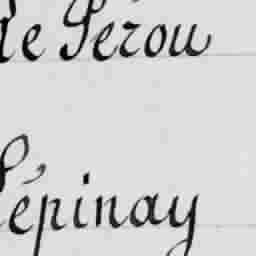 le Perou
Lépinay